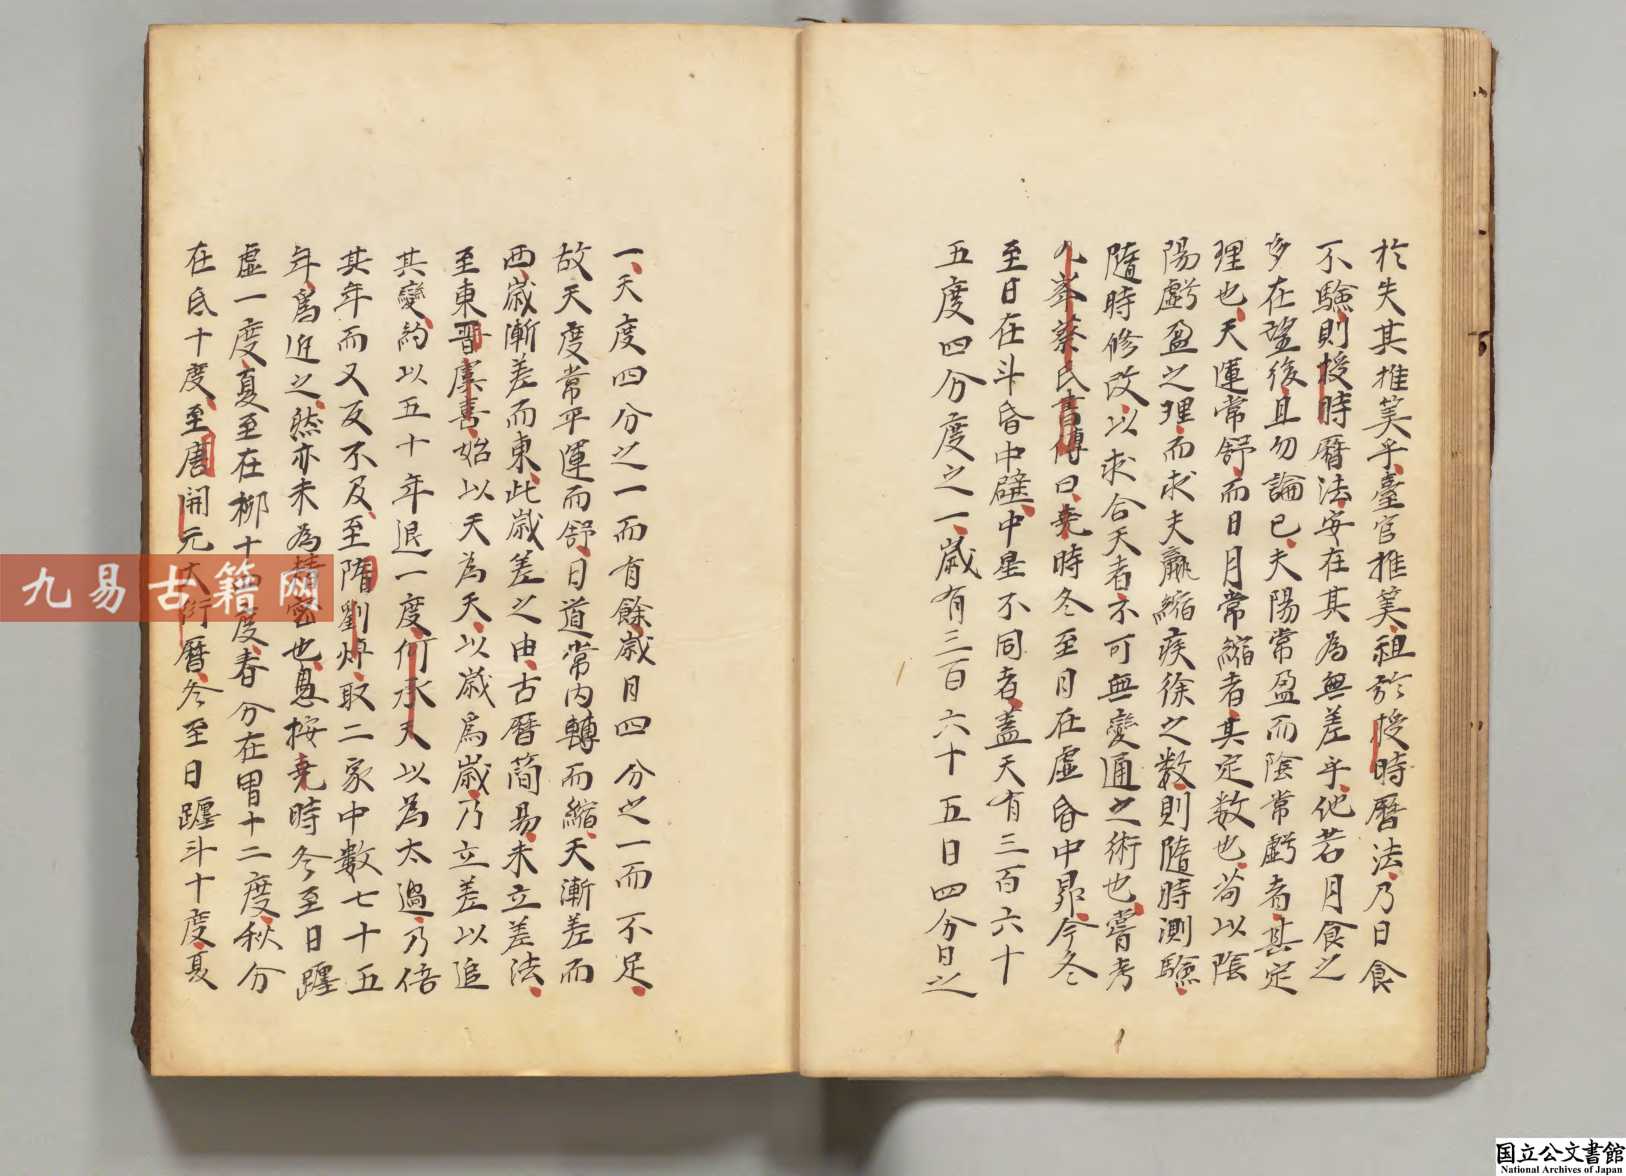 於失其推筭乎臺官推筭祖於授時曆法乃日食
不驗則授時曆法安在其為無差乎他若月食之
多在望後且勿論已夫陽常盈而陰常虧者其定
理也天運常舒而日月常縮者其定数也苟以陰
陽虧盈之理而求夫羸縮疾徐之数則隨時測驗
隨時修改以求合天者不可無變通之術也嘗考
九峯蔡氏書傳曰堯時冬至日在虛昏中昴今冬
至日在斗昏中壁中星不同者蓋天有三百六十
五度四分度之一歲有三百六十五日四分日之
一天度四分之一而有餘歲日四分之一而不足
故天度常平運而舒日道常内轉而縮天漸差而
西歲漸差而東此歲差之由古曆簡易未立差法
至東晋虞喜始以天為天以歲爲歲乃立差以追
其變約以五十年退一度何承天以為太過乃倍
其年而又反不及至隋劉焯取二家中數七十五
年爲近之然亦未為精密也愚按堯時冬至日躔
虛一度夏至在柳十四度春分在胃十二度秋分
在氐十度至唐開元大衍曆冬至日躔斗十度夏
九易古籍网
国立公文書館
National Archives of Japan